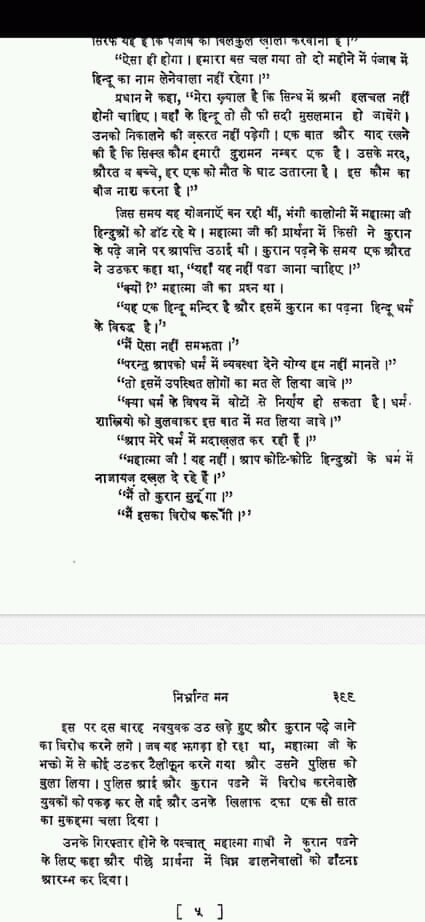 सिरफ यह है कि पंजाब को बिलकुल खाली करवाना है।"
"ऐसा ही होगा। हमारा बस चल गया तो दो महीने में पंजाब में
हिन्दू का नाम लेनेवाला नहीं रहेगा।"
प्रधान ने कहा, "मेरा ख़्याल है कि सिन्ध में अभी हलचल नहीं
होनी चाहिए। वहाँ के हिन्दू तो सौ फी सदी मुसलमान हो जावेंगे।
उनको निकालने की ज़रूरत नहीं पड़ेगी। एक बात और याद रखने
की है कि सिक्ख कौम हमारी दुशमन नम्बर एक है। उसके मरद,
औरत व बच्चे, हर एक को मौत के घाट उतारना है। इस कौम का
बीज नाश करना है।"
जिस समय यह योजनाएँ बन रही थीं, भंगी कालोनी में महात्मा जी
हिन्दुओं को डाँट रहे थे। महात्मा जी की प्रार्थना में किसी ने कुरान
के पढ़े जाने पर आपत्ति उठाई थी। कुरान पढ़ने के समय एक औरत
ने उठकर कहा था, "यहाँ यह नहीं पढा जाना चाहिए।"
"क्यों?" महात्मा जी का प्रश्न था।
"यह एक हिन्दू मन्दिर है और इसमें कुरान का पढ़ना हिन्दू धर्म
के विरुद्ध है।"
"मैं ऐसा नहीं समझता।"
"परन्तु आपको धर्म में व्यवस्था देने योग्य हम नहीं मानते।"
"तो इसमें उपस्थित लोगों का मत ले लिया जावे।"
"क्या धर्म के विषय में वोटों से निर्णय हो सकता है। धर्म-
शास्त्रियो को बुलवाकर इस बात में मत लिया जावे।"
"आप मेरे धर्म में मदाख़लत कर रही हैं।"
"महात्मा जी! यह नहीं। आप कोटि-कोटि हिन्दुओं के धर्म में
नाजायज़ दख़ल दे रहे हैं।"
"मैं तो कुरान सुनूँगा।"
"मैं इसका विरोध करूँगी।"
निर्भ्रान्त मन ३९९
इस पर दस बारह नवयुवक उठ खड़े हुए और कुरान पढ़े जाने
का विरोध करने लगे। जब यह झगड़ा हो रहा था, महात्मा जी के
भक्तो में से कोई उठकर टैलीफून करने गया और उसने पुलिस को
बुला लिया। पुलिस आई और कुरान पढने में विरोध करनेवाले
युवकों को पकड़ कर ले गई और उनके ख़िलाफ दफा एक सौ सात
का मुकद्दमा चला दिया।
उनके गिरफ्तार होने के पश्चात् महात्मा गांधी ने कुरान पढने
के लिए कहा और पीछे प्रार्थना में विघ्न डालनेवालों को डाँटना
आरम्भ कर दिया।
[ ५ ]